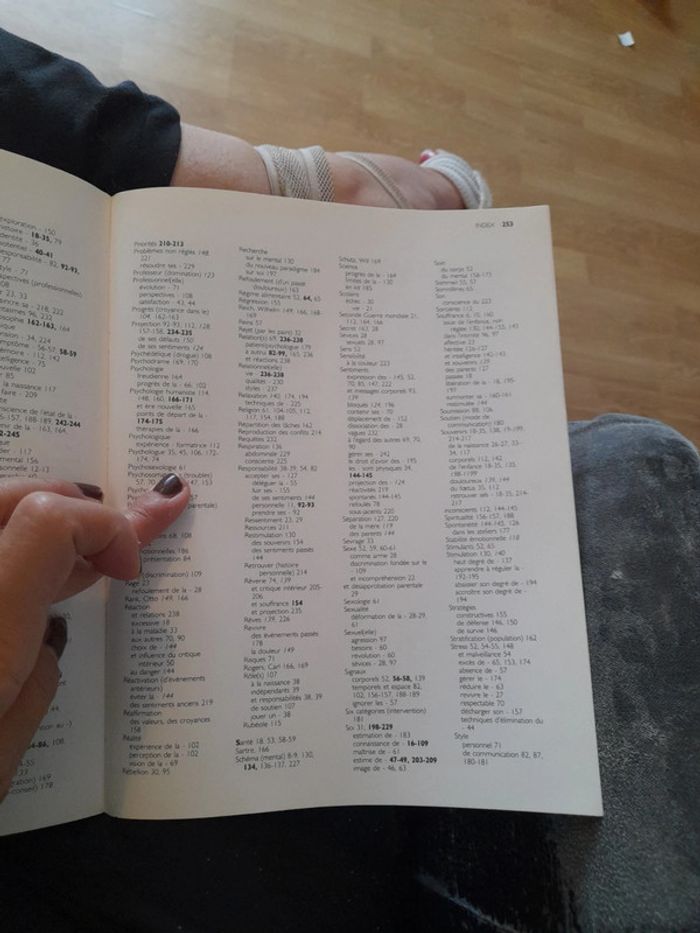 exploration - 150
histoire - 18-35, 79
identité - 36
potentiel - 40-41
responsabilité - 82, 92-93,
77
style - 71
perspectives (professionnelles)
108
23, 33
tasmes 96, 232
162-163, 164
vision - 34, 224
56-57, 58-59
mémoire - 112, 142
75
85
la naissance 117
faire - 209
science de l'état de la -
5-157, 188-189, 242-244
163, 164,
2-245
- 117
mental 156
12-13
84-86, 108,
54-55
169
178
INDEX 253
Priorités 210-213
Problèmes non réglés 148
221
résoudre ses - 229
Professeur (domination) 123
Professionnel(le)
évolution - 71
perspectives - 108
satisfaction - 43, 44
Progrès (croyance dans le)
104, 162-163
Projection 92-93, 112, 128,
157-158, 234-235
de ses défauts 150
de ses sentiments 124
Psychédélique (drogue) 108
Psychodrame 169, 170
Psychologie
freudienne 164
progrès de la - 66, 102
Psychologie humaniste 114
148, 160, 166-171
et ère nouvelle 165
points de départ de la -
174-175
thérapies de la - 166
Psychologique
expérience - formatrice 112
Psychologue 35, 45, 106, 172-
174, 74
Psychosexologie 61
(troubles)
57, 70, 147, 153
parentale)
68, 108
186
présentation 84
(discrimination) 109
Rage 23
refoulement de la - 28
Rank, Otto 149, 166
Réaction
et relations 238
excessive 18
à la maladie 33
aux autres 70, 90
choix de - 144
et influence du critique
intérieur 50
au danger 144
Réactivation (d'événements
antérieurs)
éviter la - 144
des sentiments anciens 219
Réaffirmation
des valeurs, des croyances
158
Réalité
expérience de la - 102
perception de la - 102
vision de la - 69
Rébellion 30, 95
Recherche
sur le mental 130
du nouveau paradigme 184
sur soi 197
Refoulement (d'un passé
douloureux) 163
Régime alimentaire 52, 64, 65
Régression 155
Reich, Wilhelm 149, 166, 168-
169
Reins 57
Rejet (par les pairs) 32
Relation(s) 69, 236-238
patient/psychologue 179
à autrui 82-99, 165, 236
et réactions 238
Relationnel(le)
vie - 236-238
qualités - 230
styles - 237
Relaxation 140, 174, 194
techniques de - 225
Religion 61, 104, 105, 112,
117, 154, 188
Répartition des tâches 162
Reproduction des conflits 214
Requêtes 232
Respiration 136
abdominale 229
consciente 225
Responsabilité 38-39, 54, 82
accepter ses - 127
déléguer la - 55
fuir ses - 155
de ses sentiments 144
personnelle 11, 92-93
prendre ses - 92
Ressentiment 23, 29
Ressources 211
Restimulation 130
des souvenirs 154
des sentiments passés
144
Retrouver (histoire
personnelle) 214
Rêverie 74, 139
et critique intérieur 205-
206
et souffrance 154
et projection 235
Rêves 139, 226
Revivre
des événements passés
178
la douleur 149
Risques 71
Rogers, Carl 166, 169
Rôle(s) 107
à la naissance 38
indépendants 39
et responsabilités 38, 39
de soutien 107
jouer un - 38
Rubéole 115
Santé 18, 53, 58-59
Sartre, 166
Schéma (mental) 8-9, 130,
134, 136-137, 227
Schutz, Will 169
Science
progrès de la - 164
limites de la - 130
en kit 185
Scolaire
échec - 30
vie - 21
Seconde Guerre mondiale 21,
112, 164, 166
Secret 163, 28
Sévices 28
sexuels 28, 97
Sens 52
Sensibilité
à la couleur 223
Sentiments
expression des - 145, 52,
70, 85, 147, 222
et messages corporels 93,
139
bloqués 124, 196
contenir ses - 70
déplacement de - 152
dissociation des - 28
vagues 232
à l'égard des autres 69, 70,
90
gérer ses - 242
le droit d'avoir des - 195
les - sont physiques 34,
144-145
projection des - 124
réactivés 219
spontanés 144-145
refoulés 78
sous-jacents 220
Séparation 127, 220
de la mère 119
des parents 144
Sevrage 33
Sexe 52, 59, 60-61
comme arme 28
discrimination fondée sur le
- 109
et incompréhension 22
et désapprobation parentale
29
Sexologie 61
Sexualité
déformation de la - 28-29,
61
Sexuel(le)
agression 97
besoins - 60
révolution - 60
sévices - 28, 97
Signaux
corporels 52, 56-58, 139
temporels et espace 82,
102, 156-157, 188-189
ignorer les - 57
Six catégories (intervention)
181
Soi 31, 198-229
estimation de - 183
connaissance de - 16-109
maîtrise de - 61
estime de - 47-49, 203-209
image de - 46, 63
Soin
du corps 52
du mental 158-175
Sommeil 55, 57
Somnifères 65
Son
conscience du 223
Sorcières 112
Souffrance 6, 70, 160
issue de l'enfance, non
réglée 130, 144-155, 243
dans l'intimité 96, 97
affective 23
héritée 126-127
et intelligence 142-143
et souvenirs 139
des parents 127
passée 18
libération de la - 18, 195-
197
surmonter sa - 160-161
restimulée 144
Soumission 88, 106
Soutien (mode de
communication) 180
Souvenirs 18-35, 138, 19-199,
214-217
de la naissance 26-27, 33-
34, 117
corporels 112, 142
de l'enfance 18-35, 135,
198-1199
douloureux 139, 144
du fœtus 35, 112
retrouver ses - 18-35, 214-
217
inconscients 112, 144-145
Spiritualité 156-157, 188
Spontanéité 144-145, 226
dans les ateliers 177
Stabilité émotionnelle 118
Stimulants 52, 65
Stimulation 130, 140
haut degré de - 137
apprendre à réguler la -
192-195
abaisser son degré de - 194
accroître son degré de -
194
Stratégies
constructives 155
de défense 146, 150
de survie 146
Stratification (population) 162
Stress 52, 54-55, 148
et malveillance 54
excès de - 65, 153, 174
absence de - 57
gérer le - 174
réduire le - 63
revivre le - 27
respectable 70
décharger son - 157
techniques d'élimination du
- 44
Style
personnel 71
de communication 82, 87,
180-181